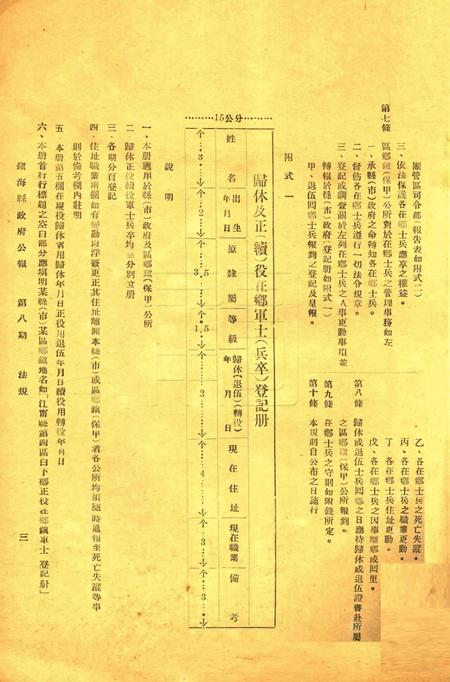 團管區司令部(報告表如附式二)
三、依法保護各在鄉士兵應享之權益。
第七條 區鄉鎮(保甲)公所對於在鄉士兵之管理事務如左
一、承縣(市)政府之命轉知各在鄉士兵。
二、督飭各在鄉士兵遵行一切法令規章。
三、登記或調查關於左列在鄉士兵之人事更動事項並
轉報於縣(市)政府(登記册如附式一)
甲、退伍囘鄉士兵報到之登記及呈報。
乙、各在鄉士兵之死亡失蹤。
丙、各在鄉士兵之職業更動。
丁、各在鄉士兵住址更動。
戊、各在鄉士兵之因事離鄉或囘里。
第八條 歸休或退伍士兵囘鄉之日應持歸休或退伍證書赴所屬
之區鄉鎮(保甲)公所報到。
第九條 在鄉士兵之守則如附錄所定。
第十條 本規則自公布之日施行
附式一
歸休及正(續)役在鄉軍士(兵卒)登記册
姓名
出生年月日
原隸屬
等級
歸休(退伍)(轉役)年月日
現在住址
現在職業
備考
3
2
3.5
1.5
2
4
3
3
15公分
說明
一、本册適用於縣(市)政府及區鄉鎮(保甲)公所
二、歸休正役續役軍士兵卒均應分別立册
三、各期分頁登記
四、住址職業兩欄如有變動均浮簽更正其住址離開本縣(市)或區鄉鎮(保甲)者各公所均須隨時通報至死亡失蹤等事
則於備考欄內註明
五、本册第五欄在現役歸休者用歸休年月日正役用退伍年月日續役用轉役年月日
六、本册首行行標題之空白部分應填明某縣(市)某區鄉鎮地名如「江甯縣第四區白下鄉正役在鄉軍士登記册」
鎮海縣政府公報 第八期 法規
三